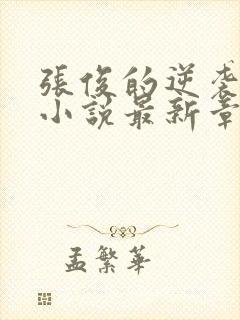 張俊的逆袭
小說最新章
孟繁華